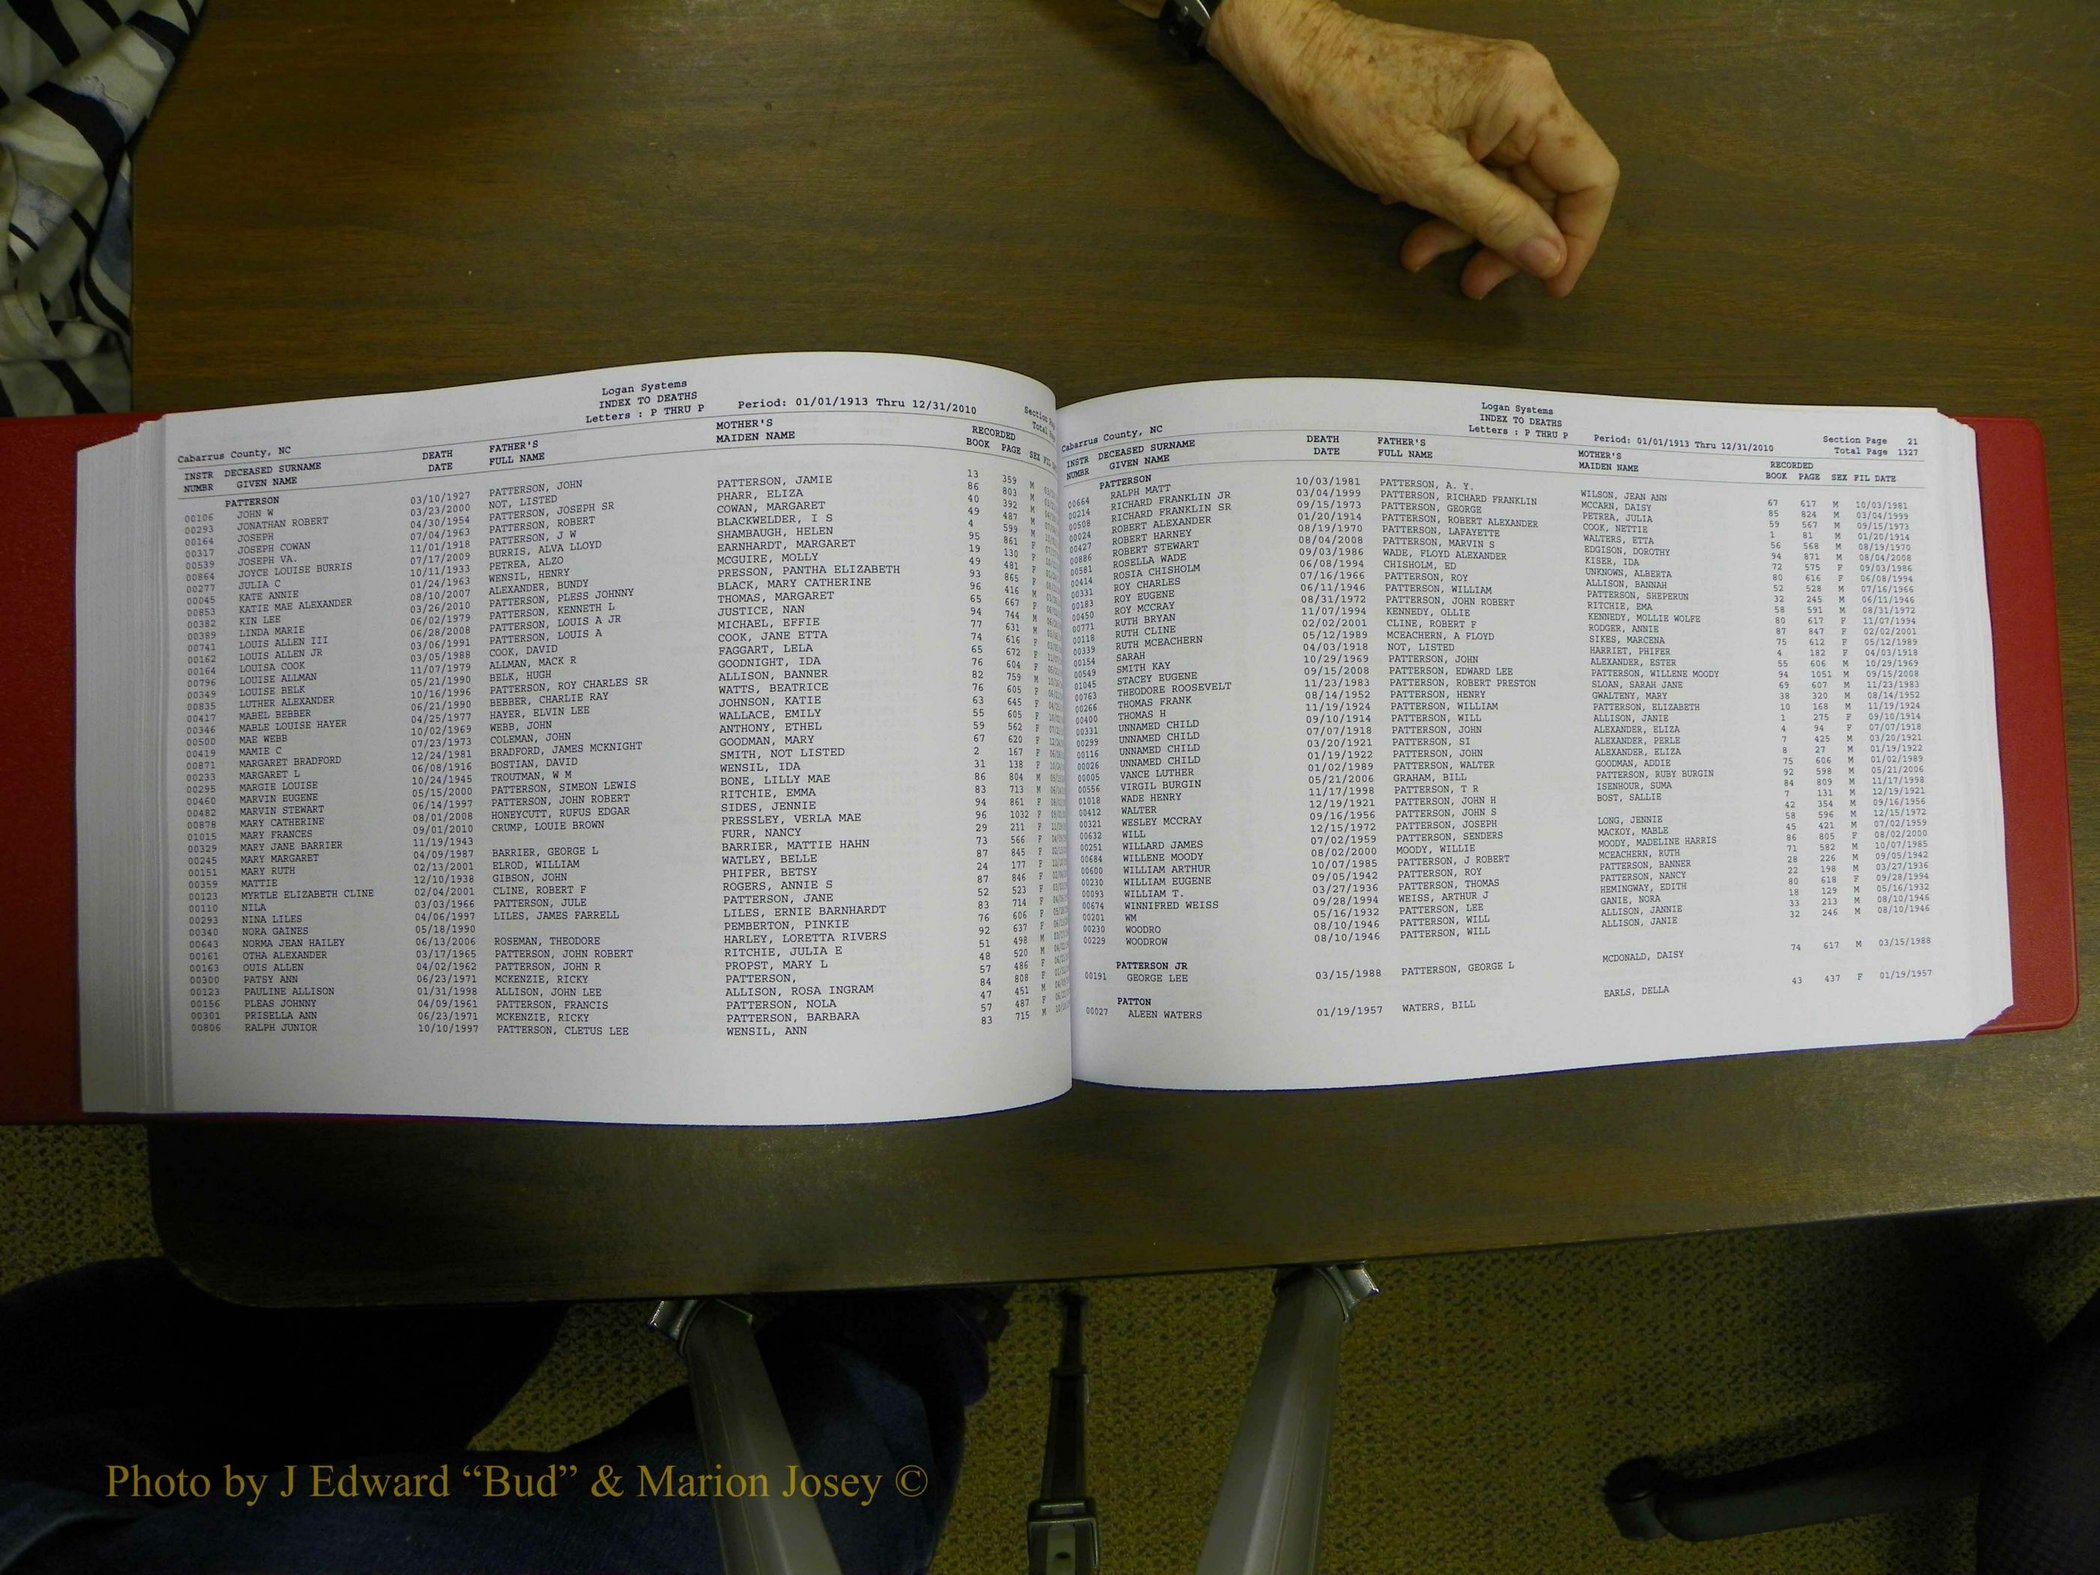 Logan Systems
INDEX TO DEATHS
Letters : P THRU P
Period: 01/01/1913 Thru 12/31/2010
Cabarrus County, NC
INSTR NUMBR
DECEASED SURNAME
GIVEN NAME
PATTERSON
00106 JOHN W
00293 JONATHAN ROBERT
00164 JOSEPH
00317 JOSEPH COWAN
00539 JOSEPH VA.
00864 JOYCE LOUISE BURRIS
00277 JULIA C
00045 KATE ANNIE
00853 KATIE MAE ALEXANDER
00382 KIN LEE
00389 LINDA MARIE
00741 LOUIS ALLEN III
00162 LOUIS ALLEN JR
00164 LOUISA COOK
00796 LOUISE ALLMAN
00349 LOUISE BELK
00835 LUTHER ALEXANDER
00417 MABEL BEBBER
00346 MABLE LOUISE HAYER
00500 MAE WEBB
00419 MAMIE C
00871 MARGARET BRADFORD
00233 MARGARET L
00295 MARGIE LOUISE
00460 MARVIN EUGENE
00482 MARVIN STEWART
00878 MARY CATHERINE
01015 MARY FRANCES
00329 MARY JANE BARRIER
00245 MARY MARGARET
00151 MARY RUTH
00359 MATTIE
00123 MYRTLE ELIZABETH CLINE
00110 NILA
00293 NINA LILES
00340 NORA GAINES
00643 NORMA JEAN HAILEY
00161 OTHA ALEXANDER
00163 OUIS ALLEN
00300 PATSY ANN
00123 PAULINE ALLISON
00156 PLEAS JOHNNY
00301 PRISELLA ANN
00806 RALPH JUNIOR
DEATH DATE
03/10/1927
03/23/2000
04/30/1954
07/04/1963
11/01/1918
07/17/2009
10/11/1933
01/24/1963
08/10/2007
03/26/2010
06/02/1979
06/28/2008
03/06/1991
03/05/1988
11/07/1979
05/21/1990
10/16/1996
06/21/1990
04/25/1977
10/02/1969
07/23/1973
12/24/1981
06/08/1916
10/24/1945
05/15/2000
06/14/1997
08/01/2008
09/01/2010
11/19/1943
04/09/1987
02/13/2001
12/10/1938
02/04/2001
03/03/1966
04/06/1997
05/18/1990
06/13/2006
03/17/1965
04/02/1962
06/23/1971
01/31/1998
04/09/1961
06/23/1971
10/10/1997
FATHER'S FULL NAME
PATTERSON, JOHN
NOT, LISTED
PATTERSON, JOSEPH SR
PATTERSON, ROBERT
PATTERSON, J W
BURRIS, ALVA LLOYD
PETREA, ALZO
WENSIL, HENRY
ALEXANDER, BUNDY
PATTERSON, PLESS JOHNNY
PATTERSON, KENNETH L
PATTERSON, LOUIS A JR
PATTERSON, LOUIS A
COOK, DAVID
ALLMAN, MACK R
BELK, HUGH
PATTERSON, ROY CHARLES SR
BEBBER, CHARLIE RAY
HAYER, ELVIN LEE
WEBB, JOHN
COLEMAN, JOHN
BRADFORD, JAMES MCKNIGHT
BOSTIAN, DAVID
TROUTMAN, W M
PATTERSON, SIMEON LEWIS
PATTERSON, JOHN ROBERT
HONEYCUTT, RUFUS EDGAR
CRUMP, LOUIE BROWN
BARRIER, GEORGE L
ELROD, WILLIAM
GIBSON, JOHN
CLINE, ROBERT F
PATTERSON, JULE
LILES, JAMES FARRELL
ROSEMAN, THEODORE
PATTERSON, JOHN ROBERT
PATTERSON, JOHN R
MCKENZIE, RICKY
ALLISON, JOHN LEE
PATTERSON, FRANCIS
MCKENZIE, RICKY
PATTERSON, CLETUS LEE
MOTHER'S MAIDEN NAME
PATTERSON, JAMIE
PHARR, ELIZA
COWAN, MARGARET
BLACKWELDER, I S
SHAMBAUGH, HELEN
EARNHARDT, MARGARET
MCGUIRE, MOLLY
PRESSON, PANTHA ELIZABETH
BLACK, MARY CATHERINE
THOMAS, MARGARET
JUSTICE, NAN
MICHAEL, EFFIE
COOK, JANE ETTA
FAGGART, LELA
GOODNIGHT, IDA
ALLISON, BANNER
WATTS, BEATRICE
JOHNSON, KATIE
WALLACE, EMILY
ANTHONY, ETHEL
GOODMAN, MARY
SMITH, NOT LISTED
WENSIL, IDA
BONE, LILLY MAE
RITCHIE, EMMA
SIDES, JENNIE
PRESSLEY, VERLA MAE
FURR, NANCY
BARRIER, MATTIE HAHN
WATLEY, BELLE
PHIFER, BETSY
ROGERS, ANNIE S
PATTERSON, JANE
LILES, ERNIE BARNHARDT
PEMBERTON, PINKIE
HARLEY, LORETTA RIVERS
RITCHIE, JULIA E
PROPST, MARY L
PATTERSON,
ALLISON, ROSA INGRAM
PATTERSON, NOLA
PATTERSON, BARBARA
WENSIL, ANN
RECORDED
BOOK PAGE SEX
13 359 M
86 803 M
40 392 M
49 487 M
4 599 M
95 861 F
19 130 F
49 481 F
93 865 F
96 416 M
65 667 F
94 744 M
77 631 M
74 616 F
65 672 F
76 604 F
82 759 M
76 605 F
63 645 F
55 605 F
59 562 F
67 620 F
2 167 F
31 138 F
86 804 M
83 713 M
94 861 F
96 1032 F
29 211 F
73 566 F
87 845 F
24 177 F
87 846 F
52 523 F
83 714 F
76 606 F
92 637 F
51 498 M
48 520 M
57 486 F
84 808 F
47 451 M
57 487 F
83 715 M
Logan Systems
INDEX TO DEATHS
Letters : P THRU P
Period: 01/01/1913 Thru 12/31/2010
Section Page 21
Total Page 1327
Cabarrus County, NC
INSTR NUMBR
DECEASED SURNAME
GIVEN NAME
PATTERSON
00664 RALPH MATT
00214 RICHARD FRANKLIN JR
00508 RICHARD FRANKLIN SR
00024 ROBERT ALEXANDER
00427 ROBERT HARNEY
00886 ROBERT STEWART
00581 ROSELLA WADE
00414 ROSIA CHISHOLM
00331 ROY CHARLES
00183 ROY EUGENE
00450 ROY MCCRAY
00771 RUTH BRYAN
00118 RUTH CLINE
00339 RUTH MCEACHERN
00154 SARAH
00549 SMITH KAY
01045 STACEY EUGENE
00763 THEODORE ROOSEVELT
00266 THOMAS FRANK
00400 THOMAS H
00331 UNNAMED CHILD
00299 UNNAMED CHILD
00116 UNNAMED CHILD
00026 UNNAMED CHILD
00005 VANCE LUTHER
00556 VIRGIL BURGIN
01018 WADE HENRY
00412 WALTER
00321 WESLEY MCCRAY
00632 WILL
00251 WILLARD JAMES
00684 WILLENE MOODY
00600 WILLIAM ARTHUR
00230 WILLIAM EUGENE
00093 WILLIAM T.
00674 WINNIFRED WEISS
00201 WM
00230 WOODRO
00229 WOODROW
PATTERSON JR
00191 GEORGE LEE
PATTON
00027 ALEEN WATERS
DEATH DATE
10/03/1981
03/04/1999
09/15/1973
01/20/1914
08/19/1970
08/04/2008
09/03/1986
06/08/1994
07/16/1966
06/11/1946
08/31/1972
11/07/1994
02/02/2001
05/12/1989
04/03/1918
10/29/1969
09/15/2008
11/23/1983
08/14/1952
11/19/1924
09/10/1914
07/07/1918
03/20/1921
01/19/1922
01/02/1989
05/21/2006
11/17/1998
12/19/1921
09/16/1956
12/15/1972
07/02/1959
08/02/2000
10/07/1985
09/05/1942
03/27/1936
09/28/1994
05/16/1932
08/10/1946
08/10/1946
03/15/1988
01/19/1957
FATHER'S FULL NAME
PATTERSON, A. Y.
PATTERSON, RICHARD FRANKLIN
PATTERSON, GEORGE
PATTERSON, ROBERT ALEXANDER
PATTERSON, LAFAYETTE
PATTERSON, MARVIN S
WADE, FLOYD ALEXANDER
CHISHOLM, ED
PATTERSON, ROY
PATTERSON, WILLIAM
PATTERSON, JOHN ROBERT
KENNEDY, OLLIE
CLINE, ROBERT F
MCEACHERN, A FLOYD
NOT, LISTED
PATTERSON, JOHN
PATTERSON, EDWARD LEE
PATTERSON, ROBERT PRESTON
PATTERSON, HENRY
PATTERSON, WILLIAM
PATTERSON, WILL
PATTERSON, JOHN
PATTERSON, SI
PATTERSON, JOHN
PATTERSON, WALTER
GRAHAM, BILL
PATTERSON, T R
PATTERSON, JOHN H
PATTERSON, JOHN S
PATTERSON, JOSEPH
PATTERSON, SENDERS
MOODY, WILLIE
PATTERSON, J ROBERT
PATTERSON, ROY
PATTERSON, THOMAS
WEISS, ARTHUR J
PATTERSON, LEE
PATTERSON, WILL
PATTERSON, WILL
PATTERSON, GEORGE L
WATERS, BILL
MOTHER'S MAIDEN NAME
WILSON, JEAN ANN
MCCARN, DAISY
PETREA, JULIA
COOK, NETTIE
WALTERS, ETTA
EDGISON, DOROTHY
KISER, IDA
UNKNOWN, ALBERTA
ALLISON, BANNAH
PATTERSON, SHEPERUN
RITCHIE, EMA
KENNEDY, MOLLIE WOLFE
RODGER, ANNIE
SIKES, MARCENA
HARRIET, PHIFER
ALEXANDER, ESTER
PATTERSON, WILLENE MOODY
SLOAN, SARAH JANE
GWALTENY, MARY
PATTERSON, ELIZABETH
ALLISON, JANIE
ALEXANDER, ELIZA
ALEXANDER, PERLE
ALEXANDER, ELIZA
GOODMAN, ADDIE
PATTERSON, RUBY BURGIN
ISENHOUR, SUMA
BOST, SALLIE
LONG, JENNIE
MACKOY, MABLE
MOODY, MADELINE HARRIS
MCEACHERN, RUTH
PATTERSON, BANNER
PATTERSON, NANCY
HEMINGWAY, EDITH
GANIE, NORA
ALLISON, JANNIE
ALLISON, JANIE
MCDONALD, DAISY
EARLS, DELLA
RECORDED
BOOK PAGE SEX FIL DATE
67 617 M 10/03/1981
85 824 M 03/04/1999
59 567 M 09/15/1973
1 81 M 01/20/1914
56 568 M 08/19/1970
94 871 M 08/04/2008
72 575 F 09/03/1986
80 616 F 06/08/1994
52 528 M 07/16/1966
32 245 M 06/11/1946
58 591 M 08/31/1972
80 617 F 11/07/1994
87 847 F 02/02/2001
75 612 F 05/12/1989
4 182 F 04/03/1918
55 606 M 10/29/1969
94 1051 M 09/15/2008
69 607 M 11/23/1983
38 320 M 08/14/1952
10 168 M 11/19/1924
1 275 F 09/10/1914
4 94 F 07/07/1918
7 425 M 03/20/1921
8 27 M 01/19/1922
75 606 M 01/02/1989
92 598 M 05/21/2006
84 809 M 11/17/1998
7 131 M 12/19/1921
42 354 M 09/16/1956
58 596 M 12/15/1972
45 421 M 07/02/1959
86 805 F 08/02/2000
71 582 M 10/07/1985
28 226 M 09/05/1942
22 198 M 03/27/1936
80 618 F 09/28/1994
18 129 M 05/16/1932
33 213 M 08/10/1946
32 246 M 08/10/1946
74 617 M 03/15/1988
43 437 F 01/19/1957
Photo by J Edward “Bud” & Marion Josey ©